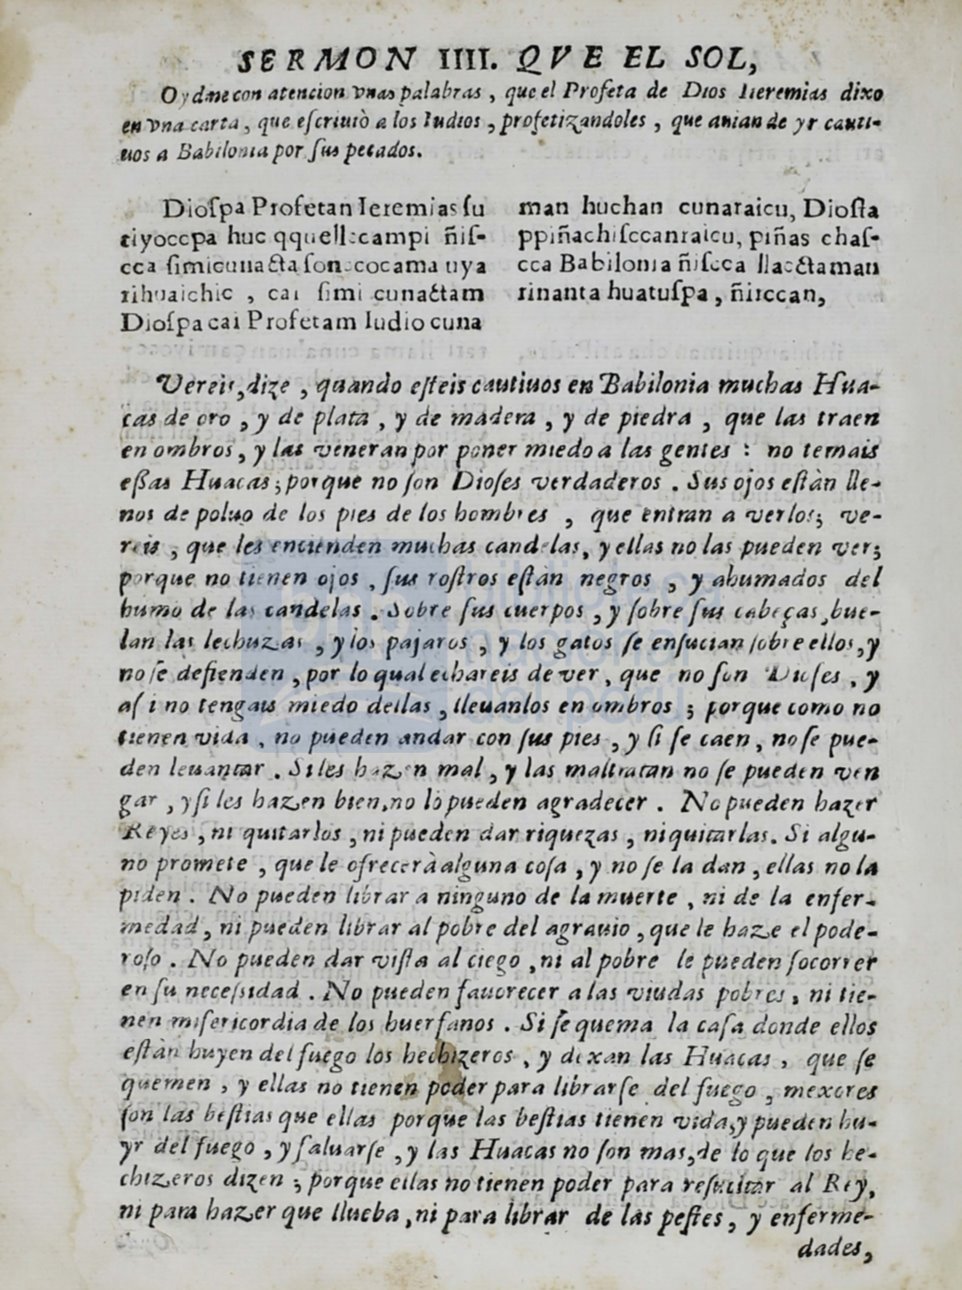 SERMON IIII. QVE EL SOL,
Oydme con atencion vnas palabras, que el Profeta de Dios Ieremias dixo
en vna carta, que eſcriuiò a los Iudios, profetizandoles, que auian de yr cauti-
uos a Babilonia por ſus pecados.
Dioſpa Profetan Ieremias ſu
tiyoccpa huc qquellccampi ñiſ-
cca ſimicunacta ſoncocama uya
rihuaichic, cai ſimi cunactam
Dioſpa cai Profetam Iudio cuna
man huchan cunaraicu, Dioſta
ppiñachiſccanraicu, piñas chaſ-
cca Babilonia ñiſcca llacctaman
rinanta huatuſpa, ñirccan,
Vereis, dize, quando eſteis cautiuos en Babilonia muchas Hua-
cas de oro, y de plata, y de madera, y de piedra, que las traen
en ombros, y las veneran por poner miedo a las gentes: no temais
eſſas Huacas; porque no ſon Dioſes verdaderos. Sus ojos eſtàn lle-
nos de poluo de los pies de los hombres, que entran a verlos; ve-
reis, que les encienden muchas candelas, y ellas no las pueden ver;
porque no tienen ojos, ſus roſtros eſtan negros, y ahumados del
humo de las candelas. Sobre ſus cuerpos, y ſobre ſus cabeças, bue-
lan las lechuzas, y los pajaros, y los gatos ſe enſucian ſobre ellos, y
no ſe defienden, por lo qual echareis de ver, que no ſon Dioſes, y
aſi no tengais miedo dellas, lleuanlos en ombros; porque como no
tienen vida, no pueden andar con ſus pies, y ſi ſe caen, no ſe pue-
den leuantar. Si les hazen mal, y las maltratan no ſe pueden ven
gar, y ſi les hazen bien, no lo pueden agradecer. No pueden hazer
Reyes, ni quitarlos, ni pueden dar riquezas, ni quitarlas. Si algu-
no promete, que le ofrecerà alguna coſa, y no ſe la dan, ellas no la
piden. No pueden librar a ninguno de la muerte, ni de la enfer-
medad, ni pueden librar al pobre del agrauio, que le haze el pode-
roſo. No pueden dar viſta al ciego, ni al pobre le pueden ſocorrer
en ſu neceſsidad. No pueden fauorecer a las viudas pobres, ni tie-
nen miſericordia de los huerfanos. Si ſe quema la caſa donde ellos
eſtàn huyen del fuego los hechizeros, y dexan las Huacas, que ſe
quemen, y ellas no tienen poder para librarſe del fuego, mexores
ſon las beſtias que ellas porque las beſtias tienen vida, y pueden hu-
yr del fuego, y ſaluarſe, y las Huacas no ſon mas, de lo que los he-
chizeros dizen; porque ellas no tienen poder para reſucitar al Rey,
ni para hazer que llueba, ni para librar de las peſtes, y enferme-
dades,